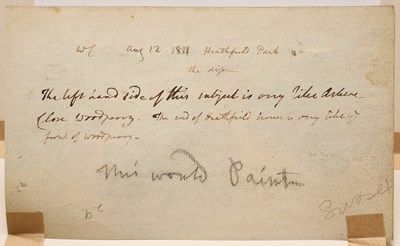 Aug 12 1811 Heathfield Park
the
The left hand side of this subject is very like
Close Woodmoor. The end of Heathfield house is very like ye
front of Woodmoor.
this would Paint
Sussex